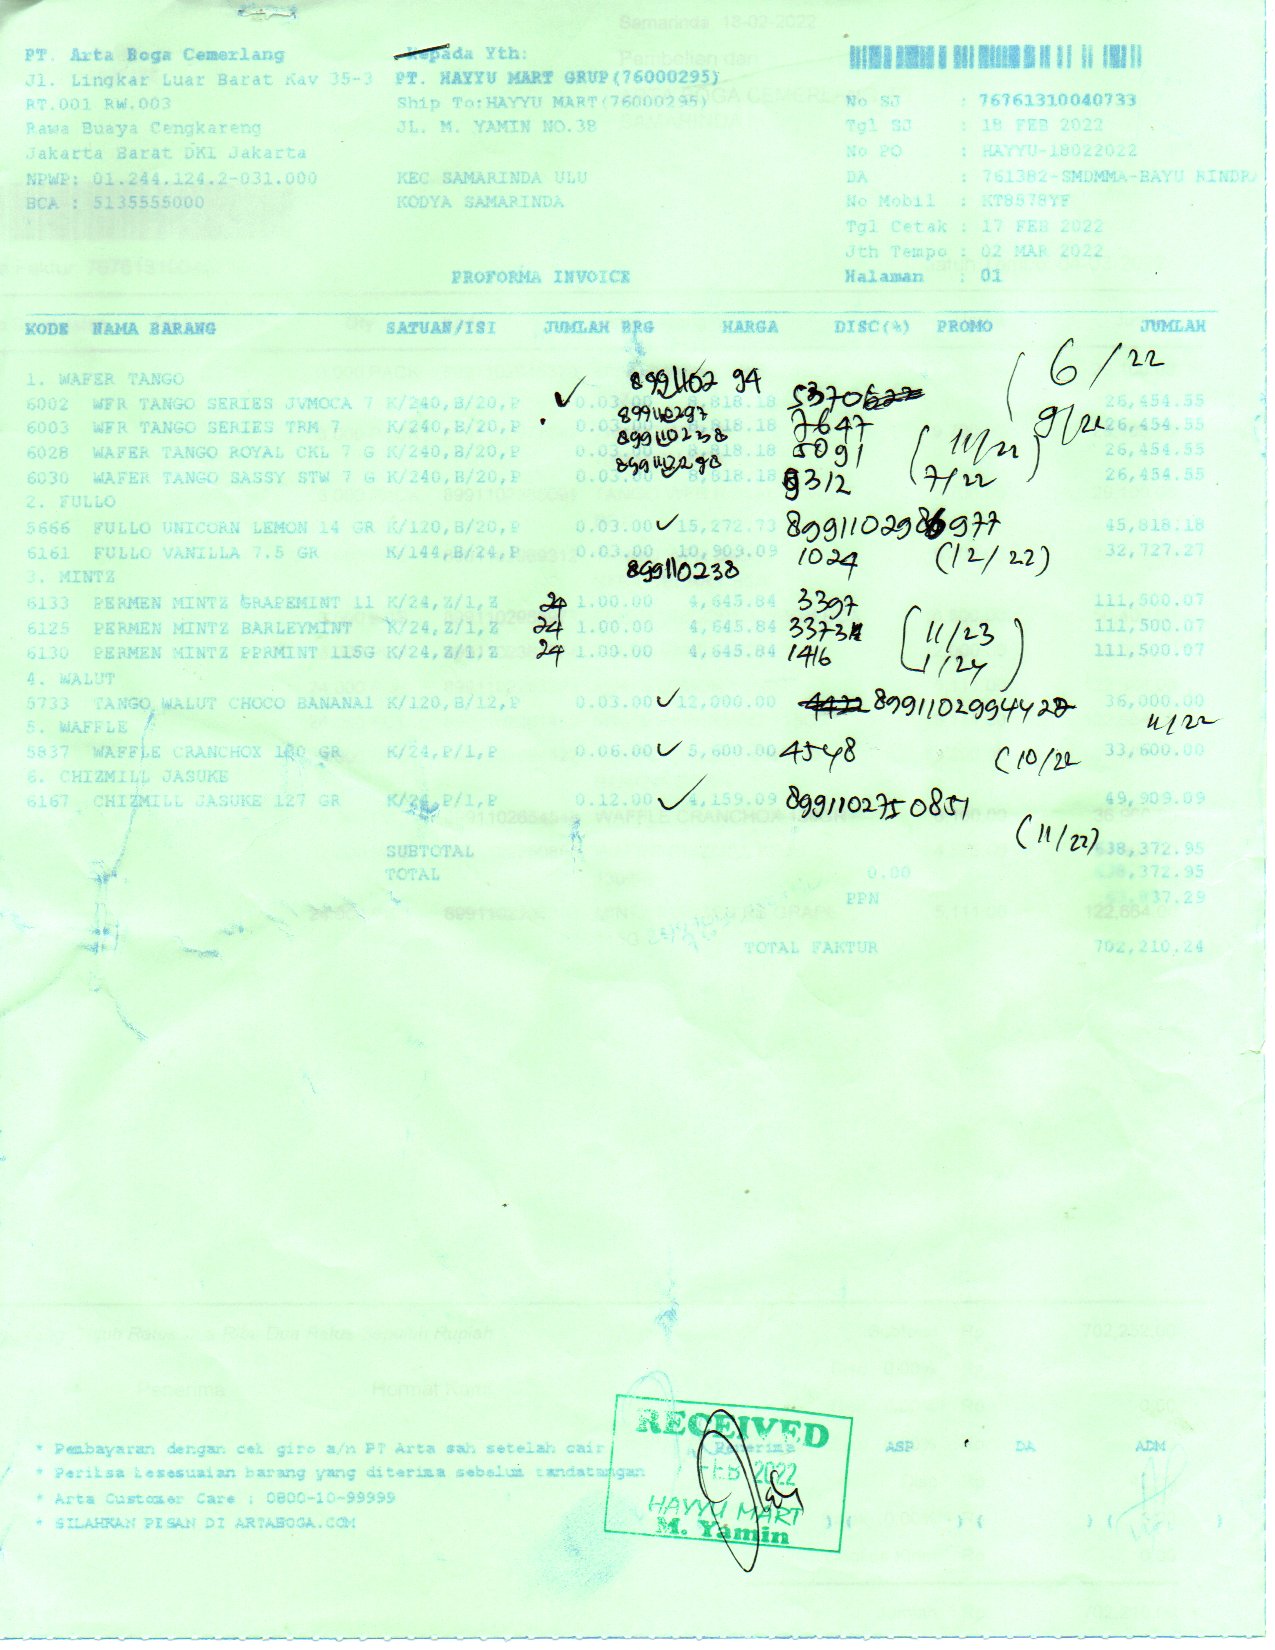 PT. Arta Boga Cemerlang
Jl. Lingkar Luar Barat Kav 35-3
RT.001 RW.003
Rawa Buaya Cengkareng
Jakarta Barat DKI Jakarta
NPWP: 01.244.124.2-031.000
BCA : 5135555000
Kepada Yth:
PT. HAYYU MART GRUP(76000295)
Ship To:HAYYU MART(76000295)
JL. M. YAMIN NO.38
KEC SAMARINDA ULU
KODYA SAMARINDA
No SJ : 76761310040733
Tgl SJ : 18 FEB 2022
No PO : HAYYU-18022022
DA : 761382-SMDMMA-BAYU KINDRA
No Mobil : KT8578YF
Tgl Cetak : 17 FEB 2022
Jth Tempo : 02 MAR 2022
Halaman : 01
PROFORMA INVOICE
KODE NAMA BARANG SATUAN/ISI JUMLAH BRG HARGA DISC(%) PROMO JUMLAH
6/22
1. WAFER TANGO 8991102 94
6002 WFR TANGO SERIES JVMOCA 7 K/240,B/20,P 0.03.00 8,818.18 5370 26,454.55
899110297 9/22
6003 WFR TANGO SERIES TRM 7 K/240,B/20,P 0.03.00 8,818.18 7647 26,454.55
899110238
6028 WAFER TANGO ROYAL CKL 7 G K/240,B/20,P 8,818.18 5091 (11/22) 26,454.55
6030 WAFER TANGO SASSY STW 7 G K/240,B/20,P 0.03.00 8,818.18 9312 (7/22 26,454.55
2. FULLO
5666 FULLO UNICORN LEMON 14 GR K/120,B/20,P 0.03.00 15,272.73 8991102986977 45,818.18
6161 FULLO VANILLA 7.5 GR K/144,B/24,P 0.03.00 10,909.09 1024 (12/22) 32,727.27
3. MINTZ 899110238
6133 PERMEN MINTZ GRAPEMINT 11 K/24,Z/1,Z 24 1.00.00 4,645.84 3397 111,500.07
6125 PERMEN MINTZ BARLEYMINT K/24,Z/1,Z 24 1.00.00 4,645.84 3373 (11/23 111,500.07
6130 PERMEN MINTZ PPRMINT 115G K/24,Z/1,Z 24 1.00.00 4,645.84 1416 1/24) 111,500.07
4. WALUT
5733 TANGO WALUT CHOCO BANANA1 K/120,B/12,P 0.03.00 12,000.00 8991102994428 36,000.00
11/22
5. WAFFLE
5837 WAFFLE CRANCHOX 100 GR K/24,P/1,P 0.06.00 5,600.00 4548 (10/22 33,600.00
6. CHIZMILL JASUKE
6167 CHIZMILL JASUKE 127 GR K/24,P/1,P 0.12.00 4,159.09 8991102750851 49,909.09
(11/22)
SUBTOTAL 638,372.95
TOTAL 0.00 638,372.95
PPN 63,837.29
TOTAL FAKTUR 702,210.24
* Pembayaran dengan cek giro a/n PT Arta sah setelah cair
* Periksa kesesuaian barang yang diterima sebelum tandatangan
* Arta Customer Care : 0800-10-99999
* SILAHKAN PESAN DI ARTABOGA.COM
Penerima ASP DA ADM
RECEIVED
FEB 2022
HAYYU MART
M. Yamin